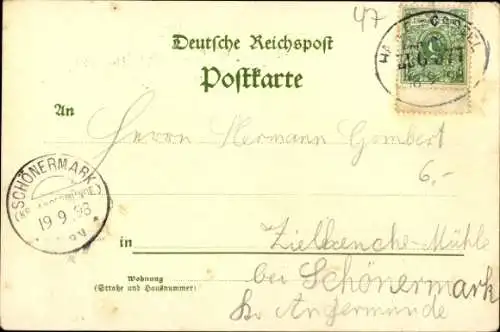 47
Deutsche Reichspost
Postkarte
An
Herrn Hermann Gombert
6,-
SCHÖNERMARK
(KR. ANGERMÜNDE)
19 9 98
in Zielkenche-Mühle
Wohnung
(Straße und Hausnummer)
bei Schönermark
Kr Angermünde